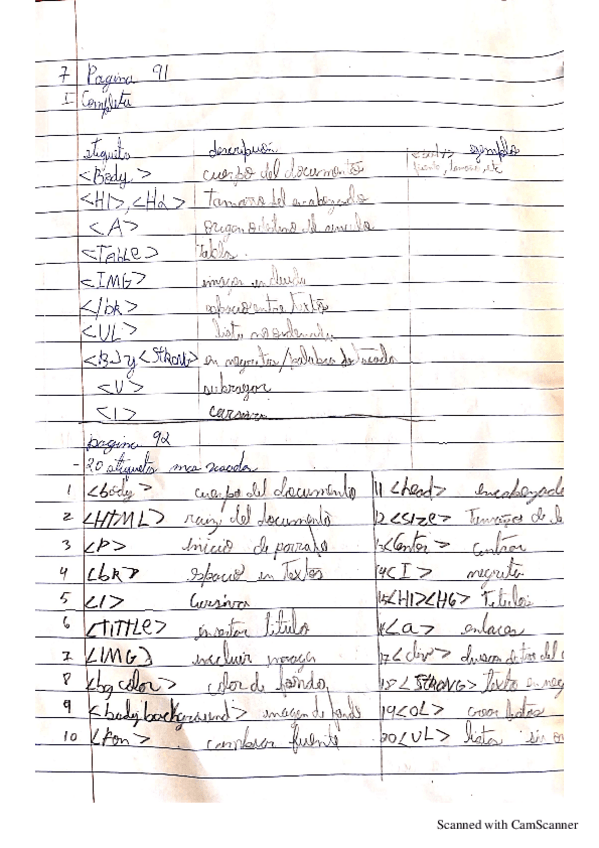 7 Pagina 91
I Completa
etiqueta descripción ejemplos
<Body> cuerpo del documento
<H1>,<H2> Tamaño del encabezado
<A> origen o destino de vinculo
<TABLE> Tabla
<IMG> imagen incluida
</bR> espacio entre Textos
<UL> lista no ordenada
<B> y <STRONG> en negritas/palabra destacada
<U> subrayar
<I> cursiva
pagina 92
- 20 etiquetas mas usadas
1 <body> cuerpo del documento 11 <head> encabezado
2 <HTML> raiz del documento 12 <size> Tamaños de
3 <P> inicio de parrafo 13 <Center> centrar
4 <bR> espacio en Textos 14 <I> negrita
5 <I> Cursiva 15 <H1><H6> Titulos
6 <TITTLE> insertar titulo 16 <a> enlaces
7 <IMG> incluir imagen 17 <div>
8 <bg color> color de fondo 18 <STRONG> texto en neg
9 <body background> imagen de fondo 19 <OL> crear listas
10 <Fon> cambiar fuente 20 <UL> listas sin
Scanned with CamScanner